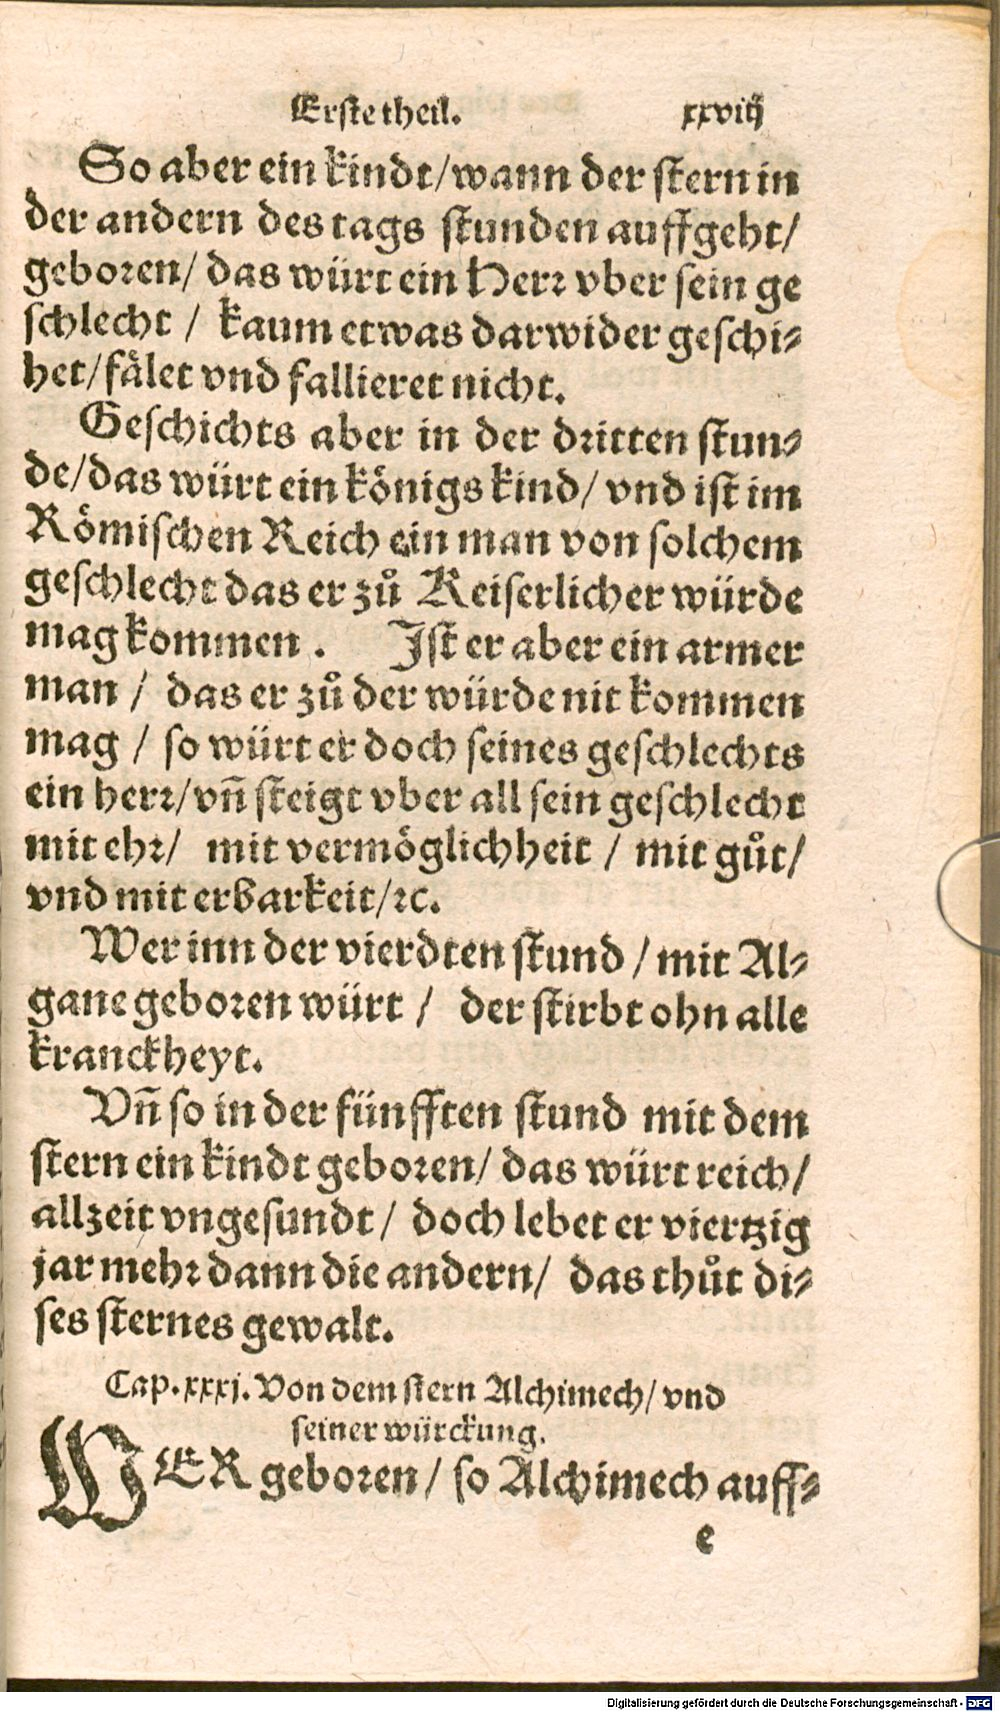 Erste theil. xxviij
So aber ein kindt/wann der stern in
der andern des tags stunden auffgeht/
geboren/ das würt ein Herr vber sein ge
schlecht / kaum etwas darwider geschi-
het/fälet vnd fallieret nicht.
Geschichts aber in der dritten stun-
de/das würt ein königs kind/ vnd ist im
Römischen Reich ein man von solchem
geschlecht das er zů Keiserlicher würde
mag kommen . Ist er aber ein armer
man / das er zů der würde nit kommen
mag / so würt er doch seines geschlechts
ein herr/vñ steigt vber all sein geschlecht
mit ehr/ mit vermöglichheit / mit gůt/
vnd mit erbarkeit/ꝛc.
Wer inn der vierdten stund / mit Al-
gane geboren würt / der stirbt ohn alle
kranckheyt.
Vñ so in der fünfften stund mit dem
stern ein kindt geboren/ das würt reich/
allzeit vngesundt / doch lebet er viertzig
jar mehr dann die andern/ das thůt di-
ses sternes gewalt.
Cap.xxxj. Von dem stern Alchimech/ vnd
seiner würckung.
WER geboren / so Alchimech auff-
e
Digitalisierung gefördert durch die Deutsche Forschungsgemeinschaft - DFG